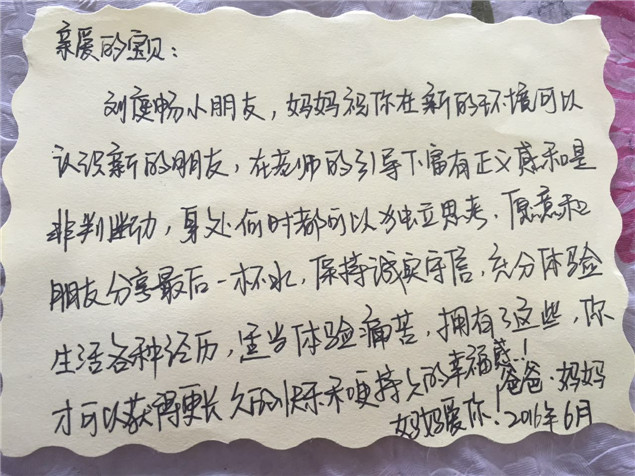 亲爱的宝贝：
刘度畅小朋友，妈妈祝你在新的环境可以
认识新的朋友，在老师的引导下富有正义感和是
非判断力，身处何时都可以独立思考．愿意和
朋友分享最后一杯水，保持诚实守信，充分体验
生活各种经历，适当体验痛苦，拥有了这些，你
才可以获得更长久的快乐和更持久的幸福感！
爸爸．妈妈
妈妈爱你！2016年6月